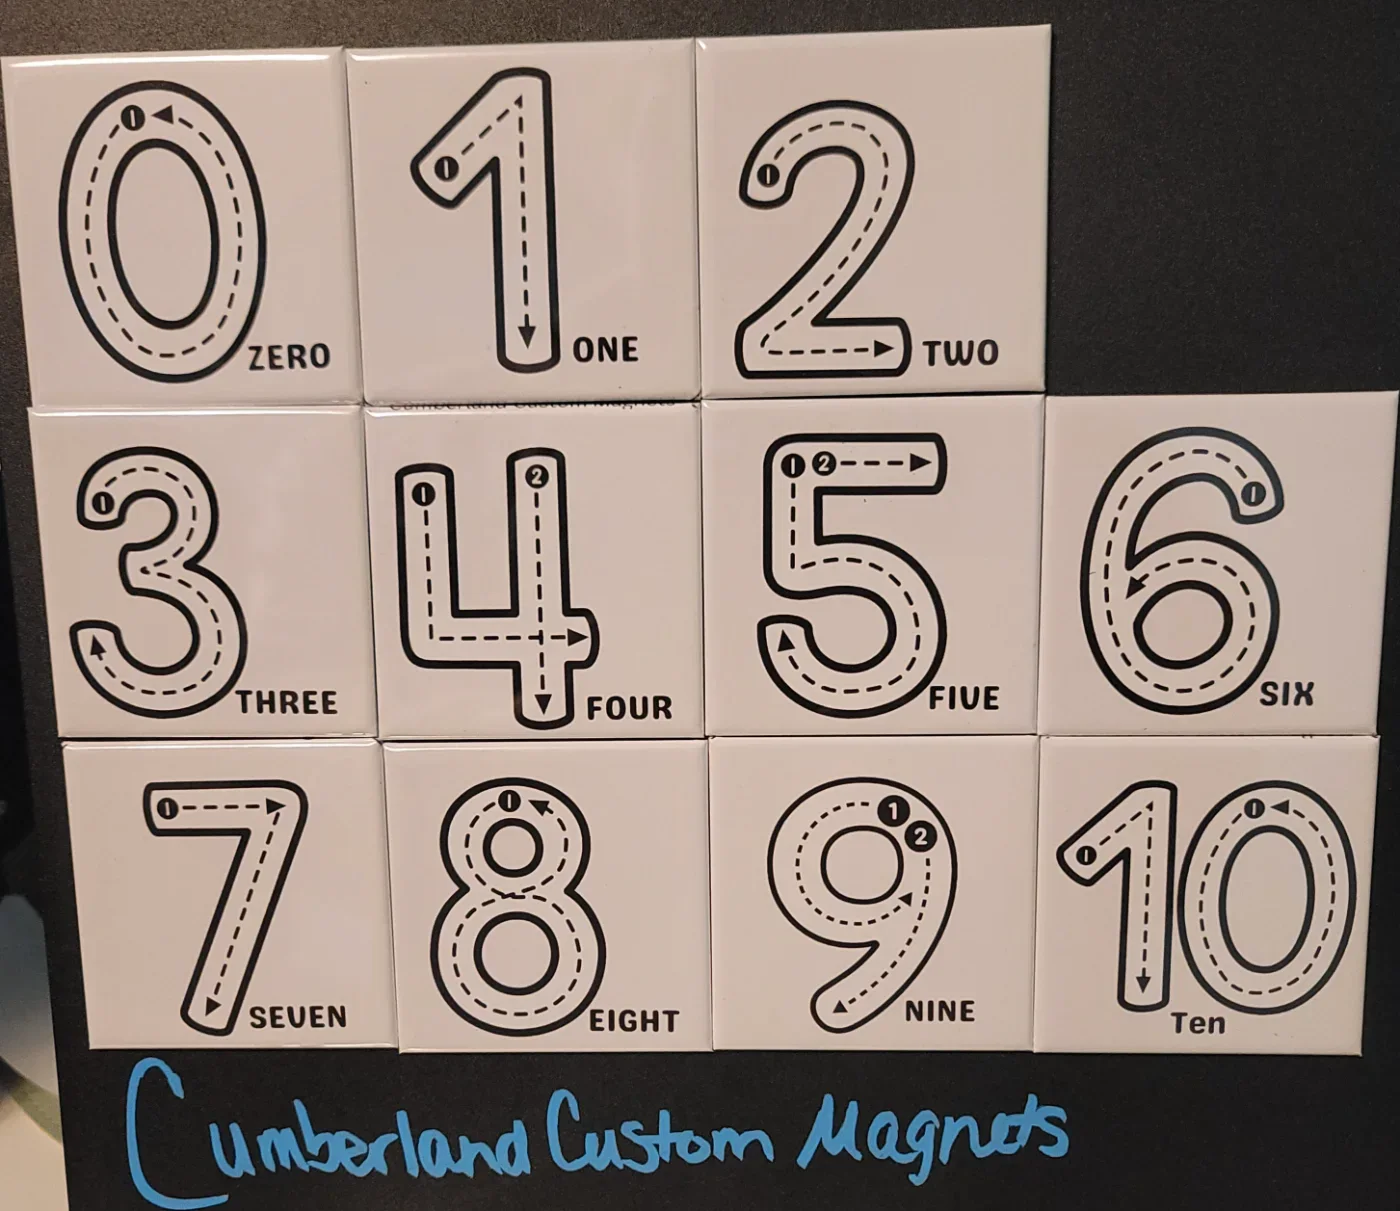 0 ZERO
1 ONE
2 TWO
Cumberland Custom Magnets
3 THREE
4 FOUR
5 FIVE
6 SIX
7 SEVEN
8 EIGHT
9 NINE
10 Ten
Cumberland Custom Magnets